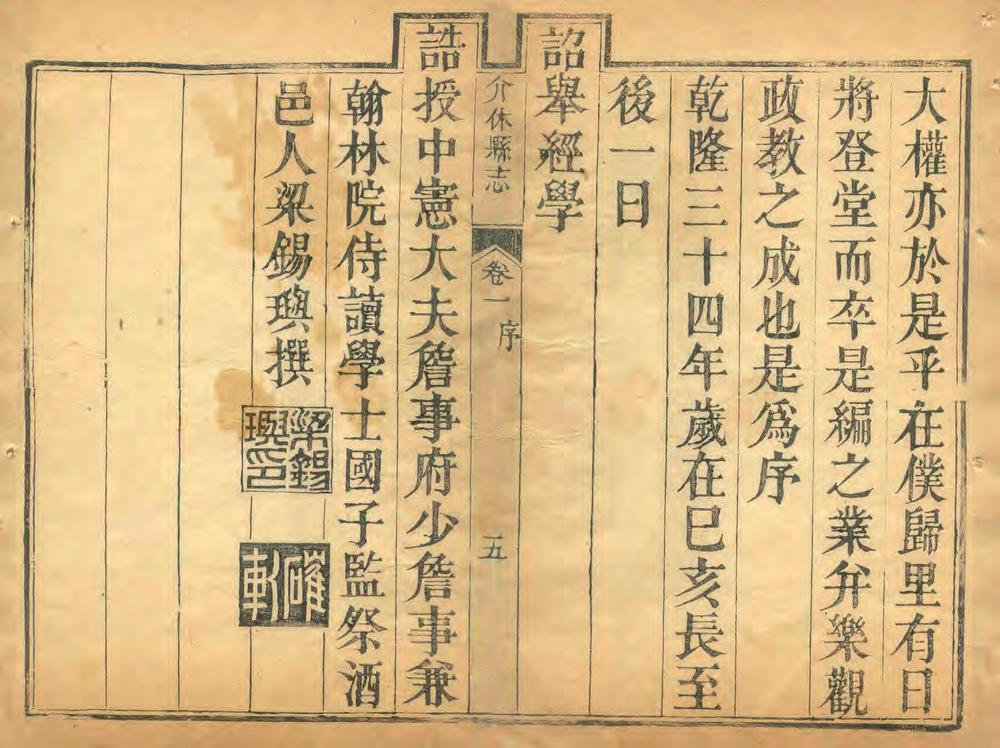 大權亦於是乎在僕歸里有日
將登堂而卒是編之業并樂觀
政教之成也是爲序
乾隆三十四年歲在巳亥長至
後一日
詔舉經學
介休縣志 卷一 序 五
誥授中憲大夫詹事府少詹事兼
翰林院侍讀學士國子監祭酒
邑人梁錫璵撰
梁錫璵印
確軒